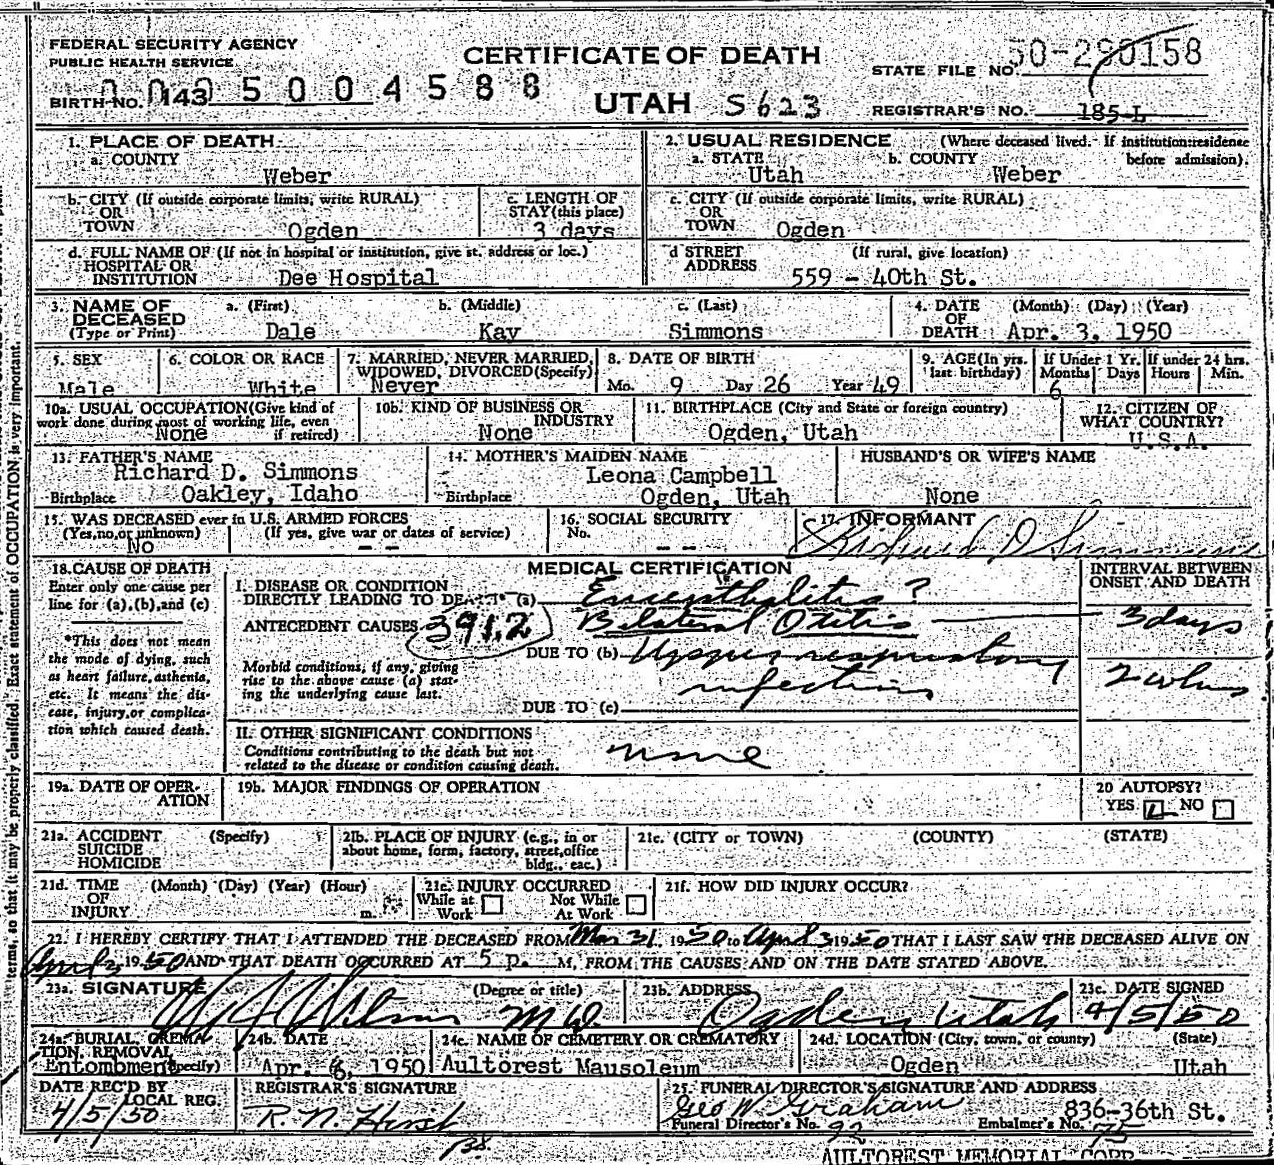 FEDERAL SECURITY AGENCY
PUBLIC HEALTH SERVICE
CERTIFICATE OF DEATH
STATE FILE NO. 50-290158
BIRTH NO. 143 5 0 0 4 5 8 8
UTAH S623
REGISTRAR'S NO. 185-L
1. PLACE OF DEATH
a. COUNTY
Weber
2. USUAL RESIDENCE (Where deceased lived. If institution: residence before admission).
a. STATE b. COUNTY
Utah Weber
b. CITY (If outside corporate limits, write RURAL)
OR
TOWN Ogden
c. LENGTH OF
STAY (this place)
3 days
c. CITY (If outside corporate limits, write RURAL)
OR
TOWN Ogden
d. FULL NAME OF (If not in hospital or institution, give st. address or loc.)
HOSPITAL OR
INSTITUTION Dee Hospital
d STREET (If rural, give location)
ADDRESS 559 - 40th St.
3. NAME OF
DECEASED
(Type or Print)
a. (First) b. (Middle) c. (Last)
Dale Kay Simmons
4. DATE (Month) (Day) (Year)
OF
DEATH Apr. 3, 1950
5. SEX
Male
6. COLOR OR RACE
White
7. MARRIED, NEVER MARRIED,
WIDOWED, DIVORCED (Specify)
Never
8. DATE OF BIRTH
Mo. 9 Day 26 Year 49
9. AGE (In yrs.
last birthday)
If Under 1 Yr.
Months Days
6
If under 24 hrs.
Hours Min.
10a. USUAL OCCUPATION (Give kind of
work done during most of working life, even
if retired)
None
10b. KIND OF BUSINESS OR
INDUSTRY
None
11. BIRTHPLACE (City and State or foreign country)
Ogden, Utah
12. CITIZEN OF
WHAT COUNTRY?
U.S.A.
13. FATHER'S NAME
Richard D. Simmons
Birthplace Oakley, Idaho
14. MOTHER'S MAIDEN NAME
Leona Campbell
Birthplace Ogden, Utah
HUSBAND'S OR WIFE'S NAME
None
15. WAS DECEASED ever in U.S. ARMED FORCES
(Yes, no, or unknown) (If yes, give war or dates of service)
No - -
16. SOCIAL SECURITY
No. - -
17. INFORMANT
Richard D Simmons
18. CAUSE OF DEATH
Enter only one cause per
line for (a), (b), and (c)
*This does not mean
the mode of dying, such
as heart failure, asthenia,
etc. It means the dis-
ease, injury, or complica-
tion which caused death.
MEDICAL CERTIFICATION
INTERVAL BETWEEN
ONSET AND DEATH
I. DISEASE OR CONDITION
DIRECTLY LEADING TO DEATH* (a) Encephalitis ?
ANTECEDENT CAUSES 391.2 Bilateral Otitis 3 days
DUE TO (b) Upper respiratory
infection
Morbid conditions, if any, giving
rise to the above cause (a) stat-
ing the underlying cause last.
DUE TO (c)
II. OTHER SIGNIFICANT CONDITIONS
Conditions contributing to the death but not
related to the disease or condition causing death.
none
19a. DATE OF OPER-
ATION
19b. MAJOR FINDINGS OF OPERATION
20 AUTOPSY?
YES NO
21a. ACCIDENT (Specify)
SUICIDE
HOMICIDE
21b. PLACE OF INJURY (e.g., in or
about home, form, factory, street, office
bldg., eac.)
21c. (CITY or TOWN) (COUNTY) (STATE)
21d. TIME (Month) (Day) (Year) (Hour)
OF
INJURY m.
21e. INJURY OCCURRED
While at Not While
Work At Work
21f. HOW DID INJURY OCCUR?
22. I HEREBY CERTIFY THAT I ATTENDED THE DECEASED FROM Mar 31, 1950 to April 3 1950 THAT I LAST SAW THE DECEASED ALIVE ON
April 3 1950 AND THAT DEATH OCCURRED AT 5 p. M, FROM THE CAUSES AND ON THE DATE STATED ABOVE.
23a. SIGNATURE (Degree or title)
Wilson M D.
23b. ADDRESS
Ogden Utah
23c. DATE SIGNED
4/5/50
24a. BURIAL, CREMA-
TION, REMOVAL
(Specify)
Entombment
24b. DATE
Apr. 6, 1950
24c. NAME OF CEMETERY OR CREMATORY
Aultorest Mausoleum
24d. LOCATION (City, town, or county) (State)
Ogden Utah
DATE REC'D BY
LOCAL REG.
4/5/50
REGISTRAR'S SIGNATURE
R. N. Hirst
25. FUNERAL DIRECTOR'S SIGNATURE AND ADDRESS
Geo W. Graham 836-36th St.
Funeral Director's No. 92 Embalmer's No. 75
AULTOREST MEMORIAL CORP
terms, so that it may be properly classified. Exact statement of OCCUPATION is very important.